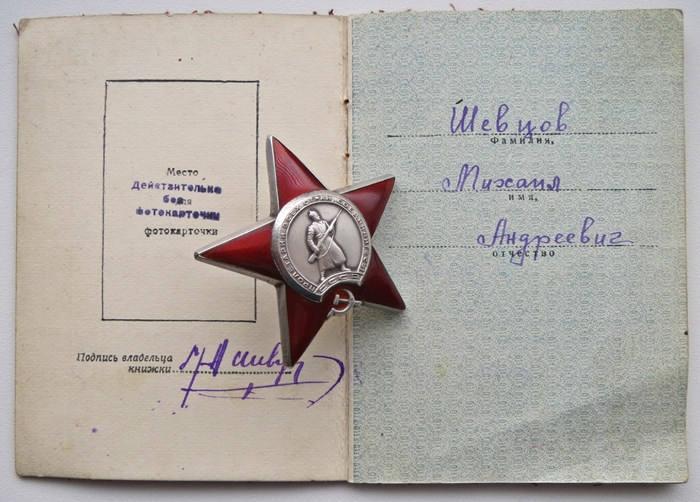 Место
Действительно
без для
фотокарточки
фотокарточки
Подпись владельца
книжки
Шевцов
Фамилия,
Михаил
имя,
Андреевич
отчество
ПРОЛЕТАРИИ ВСЕХ СТРАН, СОЕДИНЯЙТЕСЬ!
СССР